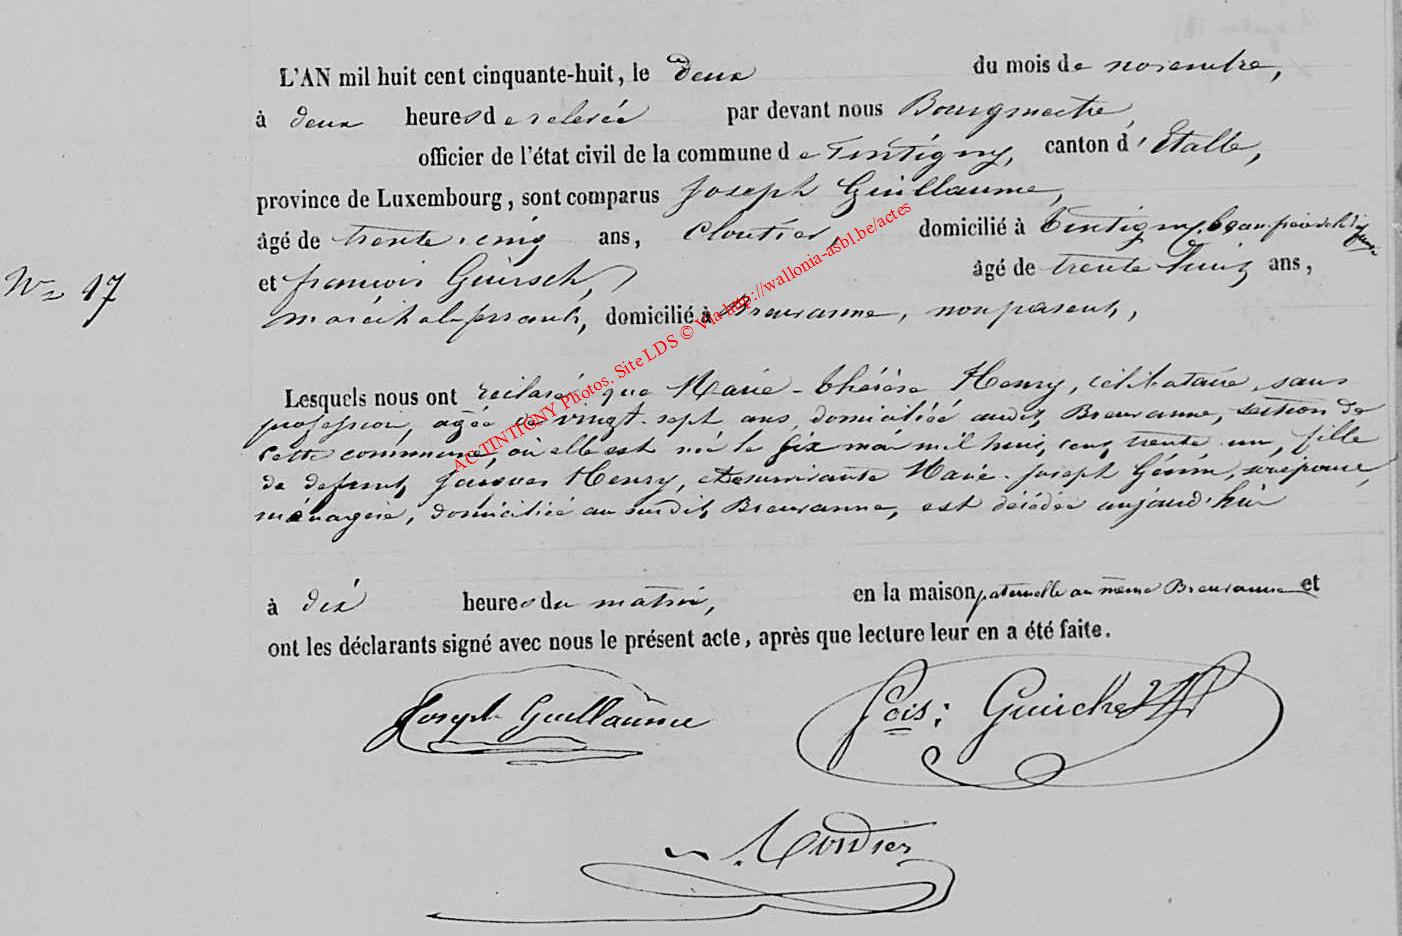 L'AN mil huit cent cinquante-huit, le deux du mois de novembre,
à deux heures de relevée par devant nous Bourgmestre,
officier de l'état civil de la commune de Tintigny, canton d'Etalle,
province de Luxembourg, sont comparus Joseph Guillaume,
âgé de trente-cinq ans, cloutier, domicilié à Tintigny, beau-frère de la
et françois âgé de trente huit ans,
N° 17
maréchal-ferrant, domicilié à Breuvanne, non parent,
Lesquels nous ont déclaré que Marie-Thérèse Henry, célibataire, sans
profession, agée de vingt-sept ans, domiciliée audit Breuvanne, section de
cette commune, où elle est née le six mai mil huit cent trente un, fille
de defunt Jacques Henry, et de survivante Marie-Joseph son épouse,
ménagère, domiciliée au susdit Breuvanne, est décédée aujourd'hui
à dix heures du matin, en la maison paternelle au même Breuvanne et
ont les déclarants signé avec nous le présent acte, après que lecture leur en a été faite.
Joseph Guillaume
fois:
ACTINTIGNY Photos. Site LDS © Via http://wallonia-asbl.be/actes